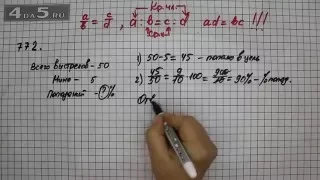 4DA5.RU
Кр. чл.
a/b = c/d, a : b = c : d ad = bc !!!
772.
Всего выстрелов - 50
Мимо - 5
Попаданий - ?%
1) 50-5 = 45 - попало в цель
2) 45/50 = 9/10 · 100 = 900/10 = 90% -
Отв